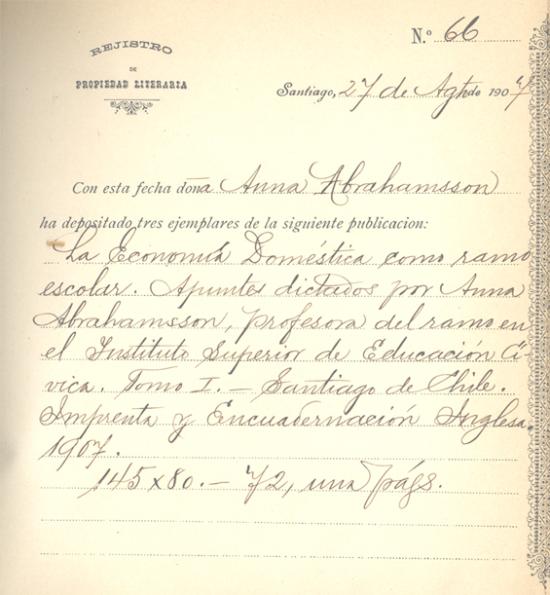 N.º 66
REJISTRO
DE
PROPIEDAD LITERARIA
Santiago, 27 de Agto de 1907
Con esta fecha dona Anna Abrahamsson
ha depositado tres ejemplares de la siguiente publicacion:
La Economía Doméstica como ramo
escolar. Apuntes dictados por Anna
Abrahamsson, profesora del ramo en
el Instituto Superior de Educación Cí-
vica. Tomo I. — Santiago de Chile.
Imprenta y Encuadernación Inglesa.
1907.
145 x 80. — 72, una págs.